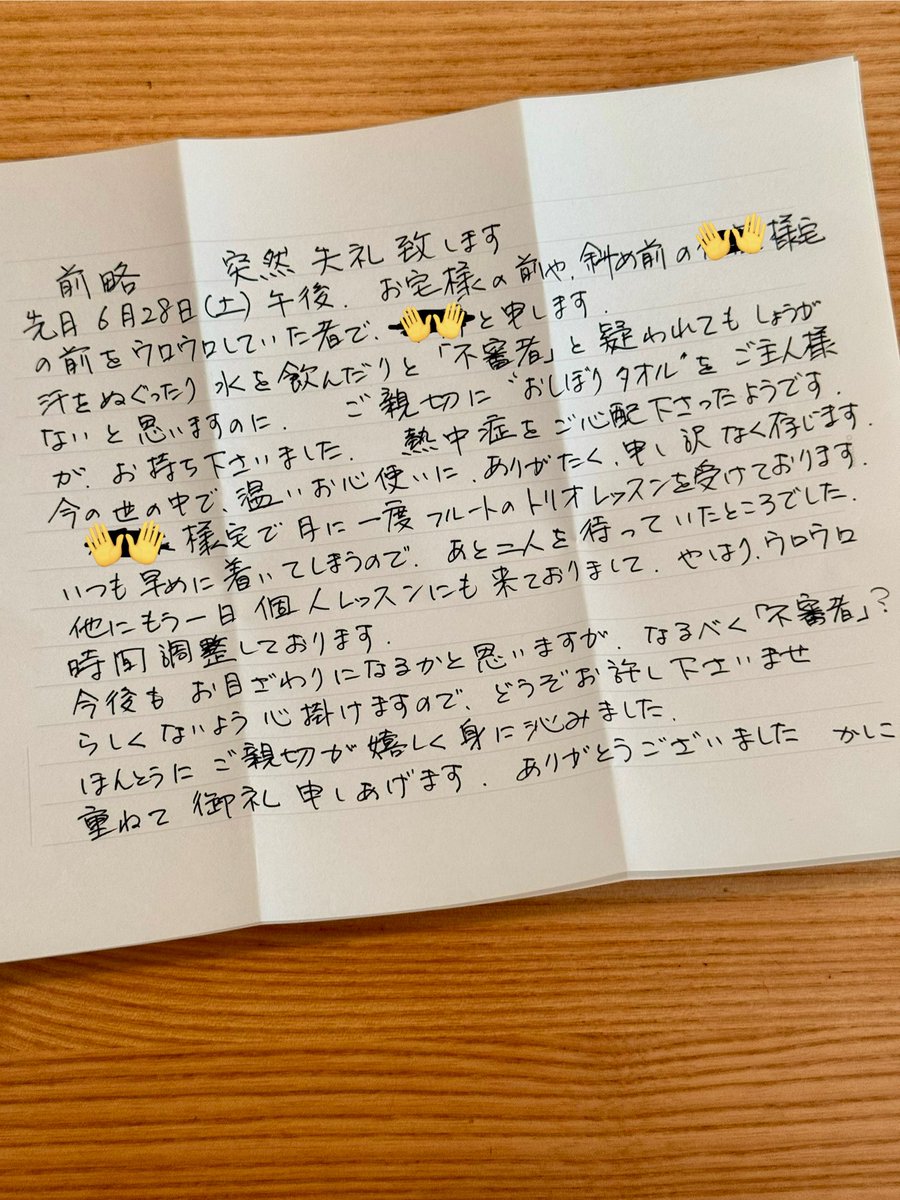 前略 突然 失礼致します
先日 6月28日(土)午後. お宅様の前や. 斜め前の 様宅
の前をウロウロしていた者で. と申します.
汗をぬぐったり 水を飲んだりと「不審者」と疑われてもしょうが
ないと思いますのに. ご親切に“おしぼりタオル”をご主人様
が. お持ち下さいました. 熱中症をご心配下さったようです.
今の世の中で、温いお心使いに. ありがたく、申し訳なく存じます.
様宅で月に一度フルートのトリオレッスンを受けております.
いつも早めに着いてしまうので. あと二人を待っていたところでした.
他にもう一日個人レッスンにも来ておりまして. やはり、ウロウロ
時間調整しております.
今後も お目ざわりになるかと思いますが. なるべく「不審者」?
らしくないよう心掛けますので、どうぞお許し下さいませ
ほんとうにご親切が嬉しく身に沁みました.
重ねて御礼申しあげます. ありがとうございました かしこ